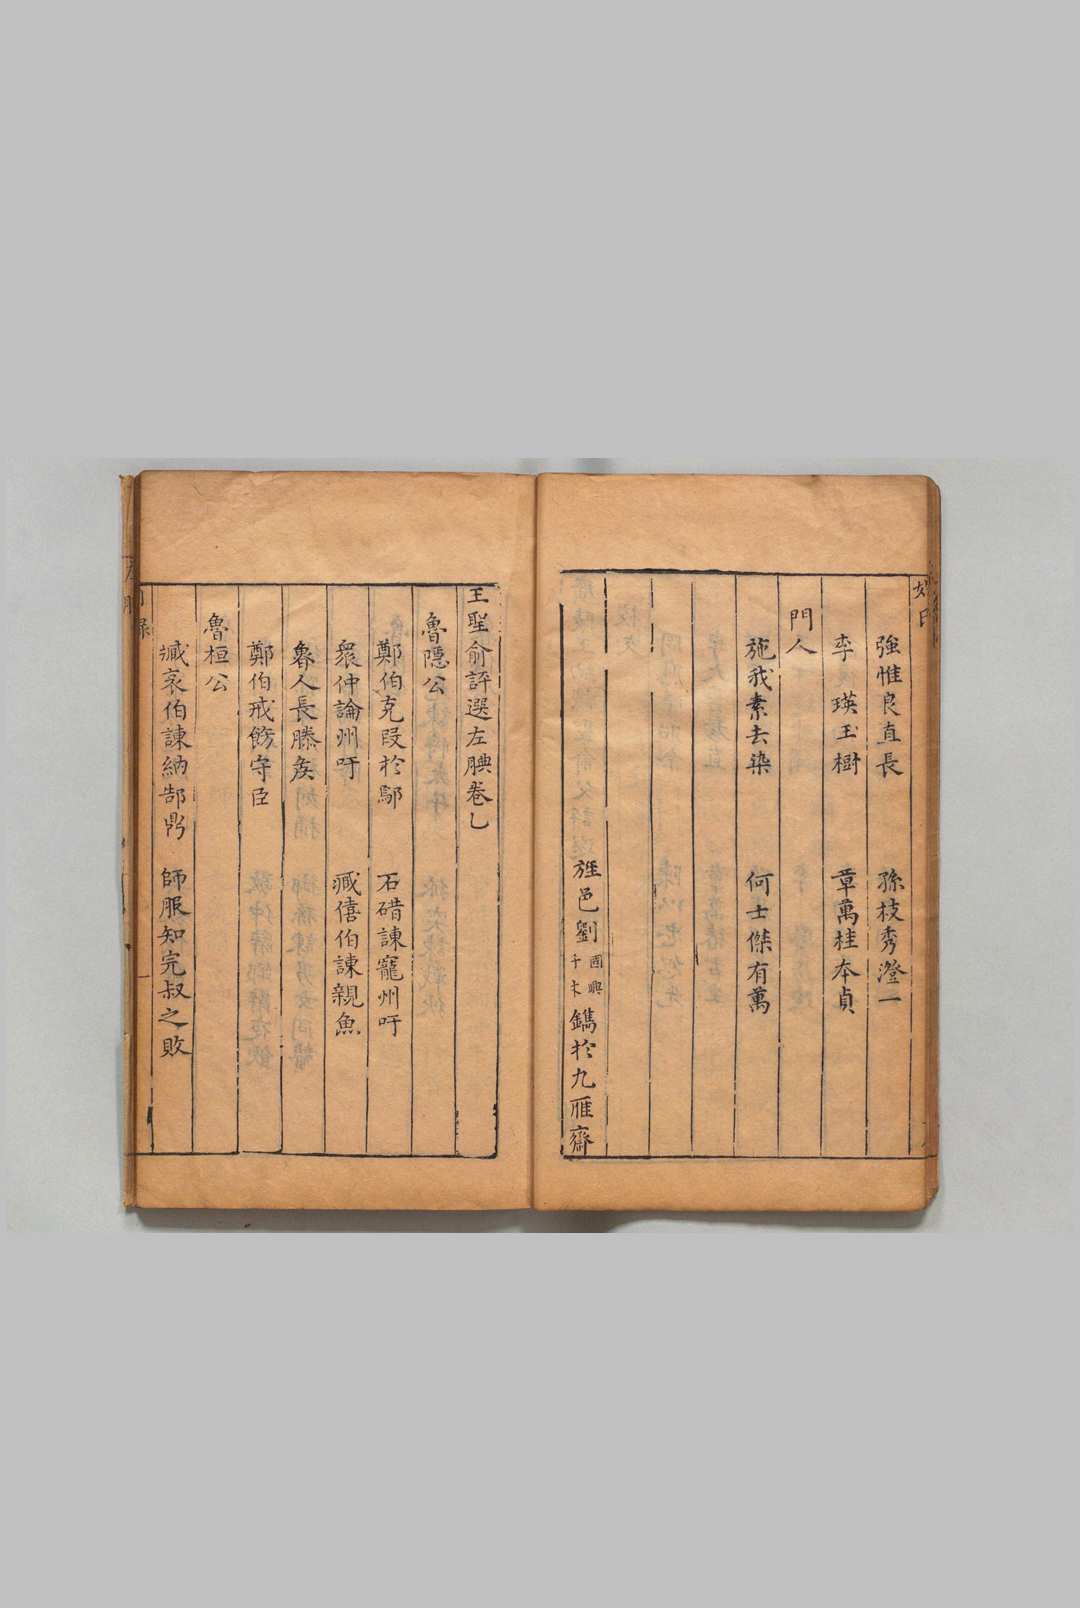 強惟良直長　孫枝秀澄一
李　瑛玉樹　章萬桂夲貞
門人
施我素去染　何士傑有萬
旌邑劉國興千木鐫於九雁齋
王聖俞評選左腴卷乚
魯隱公
鄭伯克段於鄢　石碏諫寵州吁
衆仲論州吁　臧僖伯諫親魚
魯人長滕矦
鄭伯戒飭守臣
魯桓公
臧哀伯諫納郜鼎　師服知完叔之敗